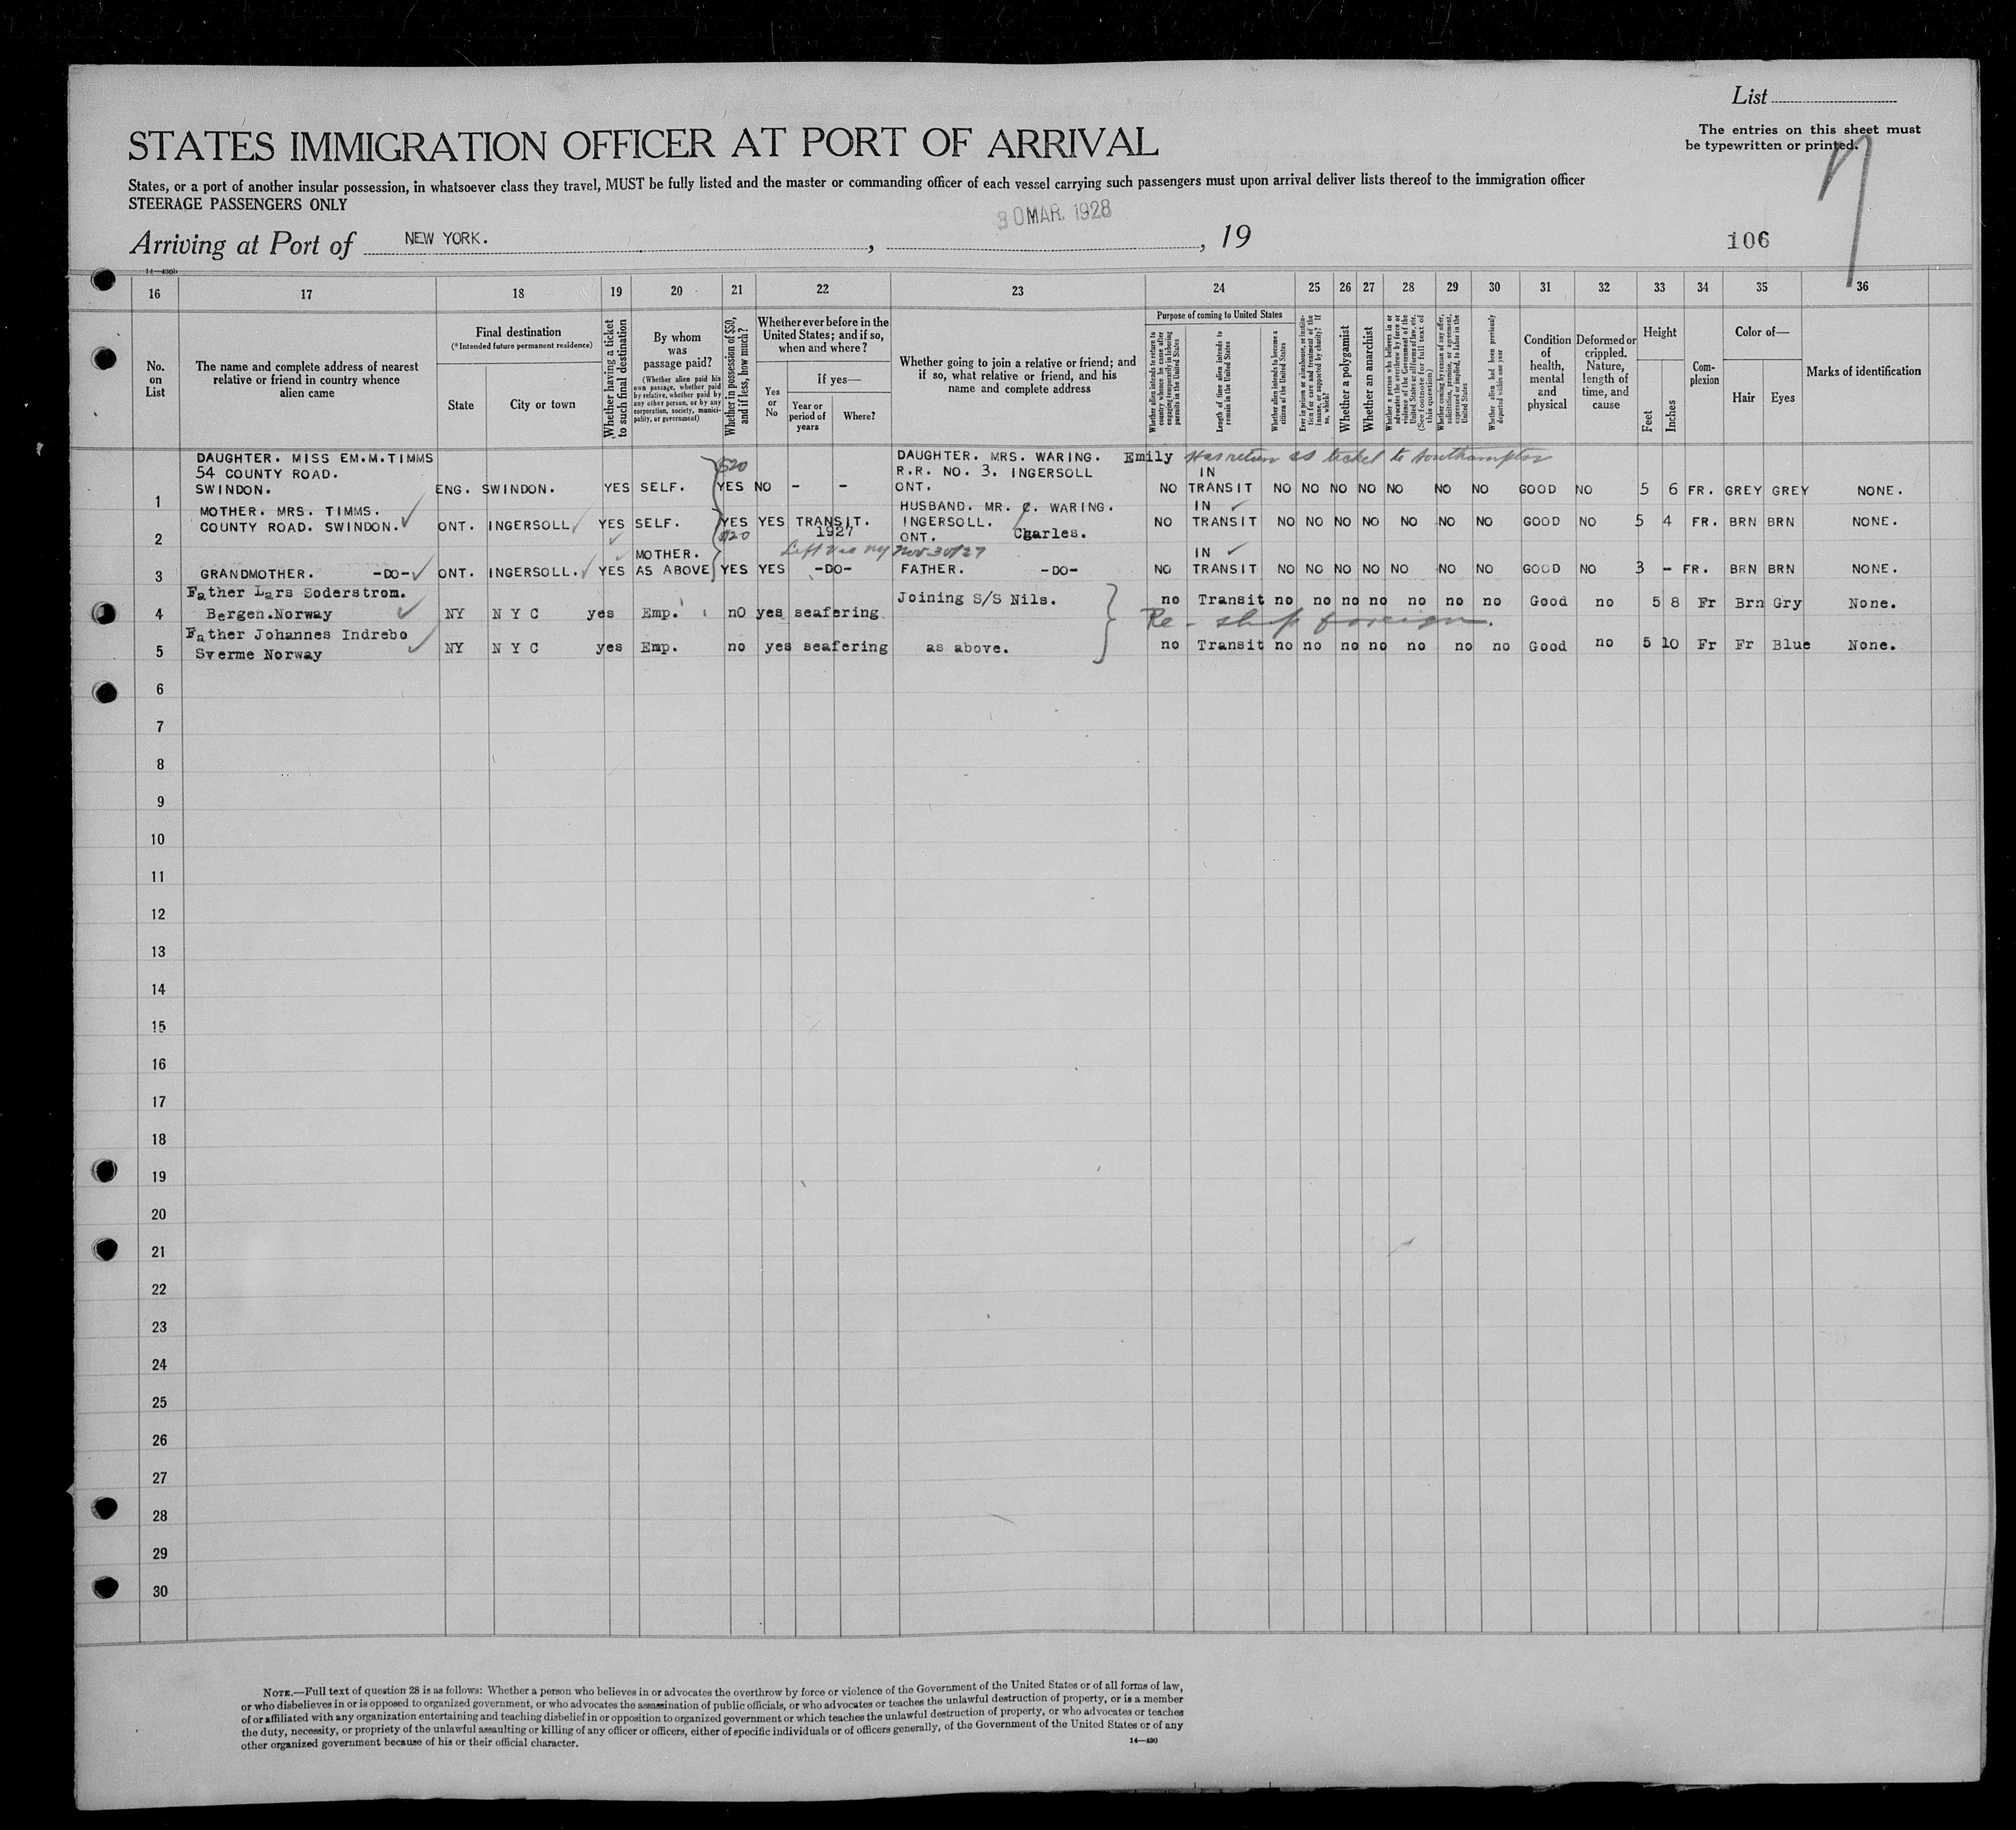 List
The entries on this sheet must
be typewritten or printed.
STATES IMMIGRATION OFFICER AT PORT OF ARRIVAL
States, or a port of another insular possession, in whatsoever class they travel, MUST be fully listed and the master or commanding officer of each vessel carrying such passengers must upon arrival deliver lists thereof to the immigration officer
STEERAGE PASSENGERS ONLY
30 MAR. 1928
Arriving at Port of NEW YORK. , , 19
106
14—430b
16 17 18 19 20 21 22 23 24 25 26 27 28 29 30 31 32 33 34 35 36
No.
on
List
The name and complete address of nearest
relative or friend in country whence
alien came
Final destination
(*Intended future permanent residence)
State
City or town
Whether having a ticket
to such final destination
By whom
was
passage paid?
(Whether alien paid his
own passage, whether paid
by relative, whether paid by
any other person, or by any
corporation, society, munici-
pality, or government)
Whether in possession of $50,
and if less, how much?
Whether ever before in the
United States; and if so,
when and where?
Yes
or
No
If yes—
Year or
period of
years
Where?
Whether going to join a relative or friend; and
if so, what relative or friend, and his
name and complete address
Purpose of coming to United States
Whether alien intends to return to
country whence he came after
engaging temporarily in laboring
pursuits in the United States
Length of time alien intends to
remain in the United States
Whether alien intends to become a
citizen of the United States
Ever in prison or almshouse, or institu-
tion for care and treatment of the
insane, or supported by charity? If
so, which?
Whether a polygamist
Whether an anarchist
Whether a person who believes in or
advocates the overthrow by force or
violence of the Government of the
United States or all forms of law, etc.
(See footnote for full text of
this question)
Whether coming by reason of any offer,
solicitation, promise, or agreement,
expressed or implied, to labor in the
United States
Whether alien had been previously
deported within one year
Condition
of
health,
mental
and
physical
Deformed or
crippled.
Nature,
length of
time, and
cause
Height
Feet
Inches
Com-
plexion
Color of—
Hair
Eyes
Marks of identification
DAUGHTER. MISS EM.M.TIMMS $20 DAUGHTER. MRS. WARING. Emily Has return ticket to Southampton
54 COUNTY ROAD. R.R. NO. 3. INGERSOLL IN
1 SWINDON. ENG. SWINDON. YES SELF. YES NO - - ONT. NO TRANSIT NO NO NO NO NO NO NO GOOD NO 5 6 FR. GREY GREY NONE.
MOTHER. MRS. TIMMS. HUSBAND. MR. C. WARING. IN
2 COUNTY ROAD. SWINDON. ONT. INGERSOLL YES SELF. YES YES TRANSIT. INGERSOLL. NO TRANSIT NO NO NO NO NO NO NO GOOD NO 5 4 FR. BRN BRN NONE.
$120 1927 ONT. Charles.
MOTHER. Left via NY Nov 30/27 IN
3 GRANDMOTHER. -DO- ONT. INGERSOLL. YES AS ABOVE YES YES -DO- FATHER. -DO- NO TRANSIT NO NO NO NO NO NO NO GOOD NO 3 - FR. BRN BRN NONE.
Father Lars Soderstrom. Joining S/S Nils.
4 Bergen.Norway NY N Y C yes Emp. nO yes seafering no Transit no no no no no no no Good no 5 8 Fr Brn Gry None.
Re-ship foreign.
Father Johannes Indrebo
5 Sverme Norway NY N Y C yes Emp. no yes seafering as above. no Transit no no no no no no no Good no 5 10 Fr Fr Blue None.
6
7
8
9
10
11
12
13
14
15
16
17
18
19
20
21
22
23
24
25
26
27
28
29
30
NOTE.—Full text of question 28 is as follows: Whether a person who believes in or advocates the overthrow by force or violence of the Government of the United States or of all forms of law,
or who disbelieves in or is opposed to organized government, or who advocates the assassination of public officials, or who advocates or teaches the unlawful destruction of property, or is a member
of or affiliated with any organization entertaining and teaching disbelief in or opposition to organized government or which teaches the unlawful destruction of property, or who advocates or teaches
the duty, necessity, or propriety of the unlawful assaulting or killing of any officer or officers, either of specific individuals or of officers generally, of the Government of the United States or of any
other organized government because of his or their official character.
14—430